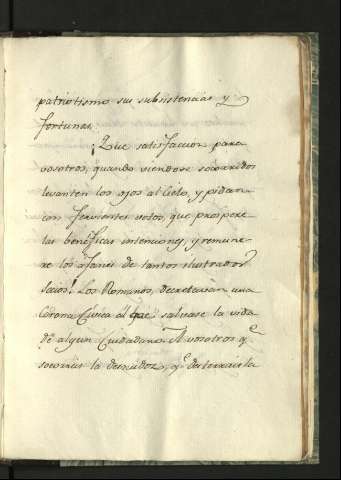 patriotismo sus subsistencias y
fortunas.
¡Que satisfaccion para
vosotros, quando viendose socorridos
levanten los ojos al Cielo, y pidan
con fervientes votos, que prospere
las beneficas intenciones, y remune-
re los afanes de tantos ilustrados
Socios! Los Romanos, decretavan una
Corona Civica al que salvase la vida
de algun Ciudadano. A vosotros q.e
socorreis la desnudez, q.e desterrais la